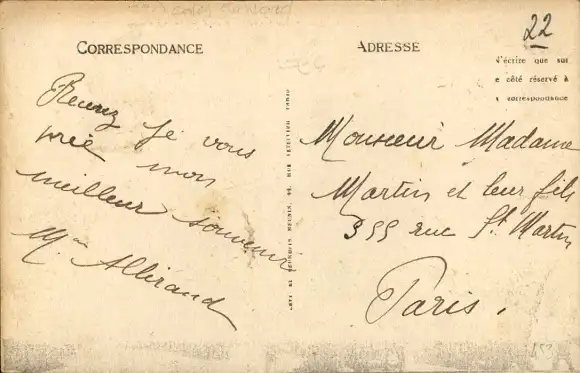 22
CORRESPONDANCE
ADRESSE
N'écrire que sur
e côté réservé à
correspondance
Recevez je vous
prie mon
meilleur souvenir
Mme Alliraud
Monsieur Madame
Martin et leur fils
355 rue St Martin
Paris.